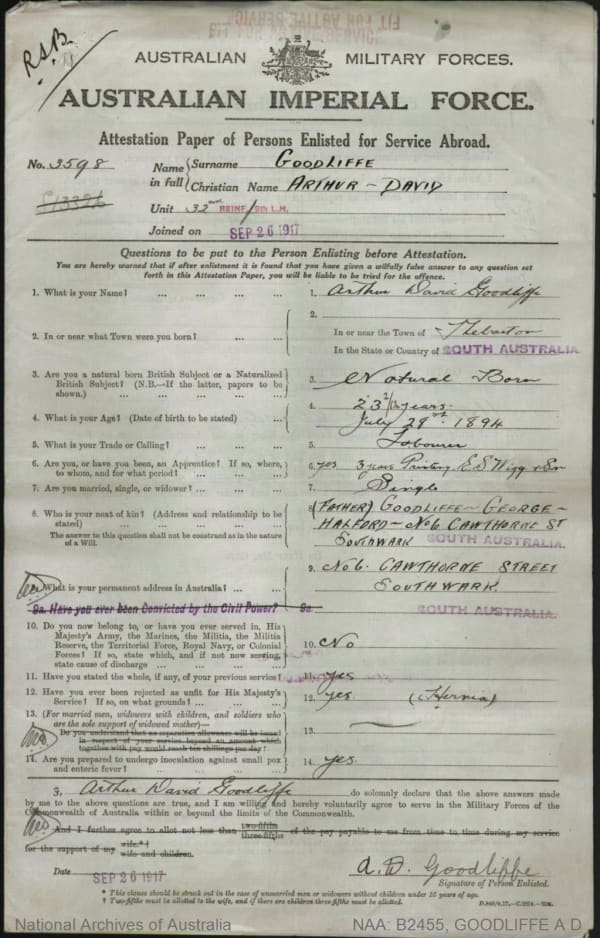 R.S.B.
FIT FOR ACTIVE SERVICE
AUSTRALIAN MILITARY FORCES.
AUSTRALIAN IMPERIAL FORCE.
Attestation Paper of Persons Enlisted for Service Abroad.
No. 3598
Name in full
Surname GOODLIFFE
Christian Name ARTHUR – DAVID
Unit 32nd REINF/9th L.H.
Joined on SEP 26 1917
Questions to be put to the Person Enlisting before Attestation.
You are hereby warned that if after enlistment it is found that you have given a wilfully false answer to any question set
forth in this Attestation Paper, you will be liable to be tried for the offence.
1. What is your Name? ... ... ... 1. Arthur David Goodliffe
2. In or near what Town were you born? ... 2. In or near the Town of Thebarton
In the State or Country of SOUTH AUSTRALIA
3. Are you a natural born British Subject or a Naturalized
British Subject? (N.B.—If the latter, papers to be
shown.) ... ... ... ... 3. Natural Born
4. What is your Age? (Date of birth to be stated) ... 4. 23 2/12 years.
July 29th. 1894
5. What is your Trade or Calling? ... ... ... 5. Labourer
6. Are you, or have you been, an Apprentice? If so, where,
to whom, and for what period? ... ... ... 6. yes 3 years Printing E.S Wigg & Son
7. Are you married, single, or widower? ... ... ... 7. Single
8. Who is your next of kin? (Address and relationship to be
stated) ... ... ... ...
The answer to this question shall not be construed as in the nature
of a Will.
8 (FATHER) GOODLIFFE – GEORGE –
HALFORD – No 6 CAWTHORNE ST
SOUTHWARK SOUTH AUSTRALIA.
What is your permanent address in Australia? ... ...
9. No 6. CAWTHORNE STREET
SOUTHWARK.
SOUTH AUSTRALIA.
9a. Have you ever been Convicted by the Civil Power? 9a.
10. Do you now belong to, or have you ever served in, His
Majesty's Army, the Marines, the Militia, the Militia
Reserve, the Territorial Force, Royal Navy, or Colonial
Forces? If so, state which, and if not now serving,
state cause of discharge ... ... ... 10. No
11. Have you stated the whole, if any, of your previous service? 11. yes
12. Have you ever been rejected as unfit for His Majesty's
Service? If so, on what grounds? ... ... 12. yes (Hernia)
13. (For married men, widowers with children, and soldiers who
are the sole support of widowed mother)—
Do you understand that no separation allowance will be issued
in respect of your service beyond an amount which
together with pay would reach ten shillings per day? 13.
14. Are you prepared to undergo inoculation against small pox
and enteric fever? ... ... ... ... 14. yes.
I, Arthur David Goodliffe do solemnly declare that the above answers made
by me to the above questions are true, and I am willing and hereby voluntarily agree to serve in the Military Forces of the
Commonwealth of Australia within or beyond the limits of the Commonwealth.
And I further agree to allot not less than two-fifths three-fifths of the pay payable to me from time to time during my service
for the support of my wife.* † wife and children.
Date SEP 26 1917
A. D. Goodliffe
Signature of Person Enlisted.
* This clause should be struck out in the case of unmarried men or widowers without children under 16 years of age.
† Two-fifths must be allotted to the wife, and if there are children three-fifths must be allotted.
National Archives of Australia NAA: B2455, GOODLIFFE A D